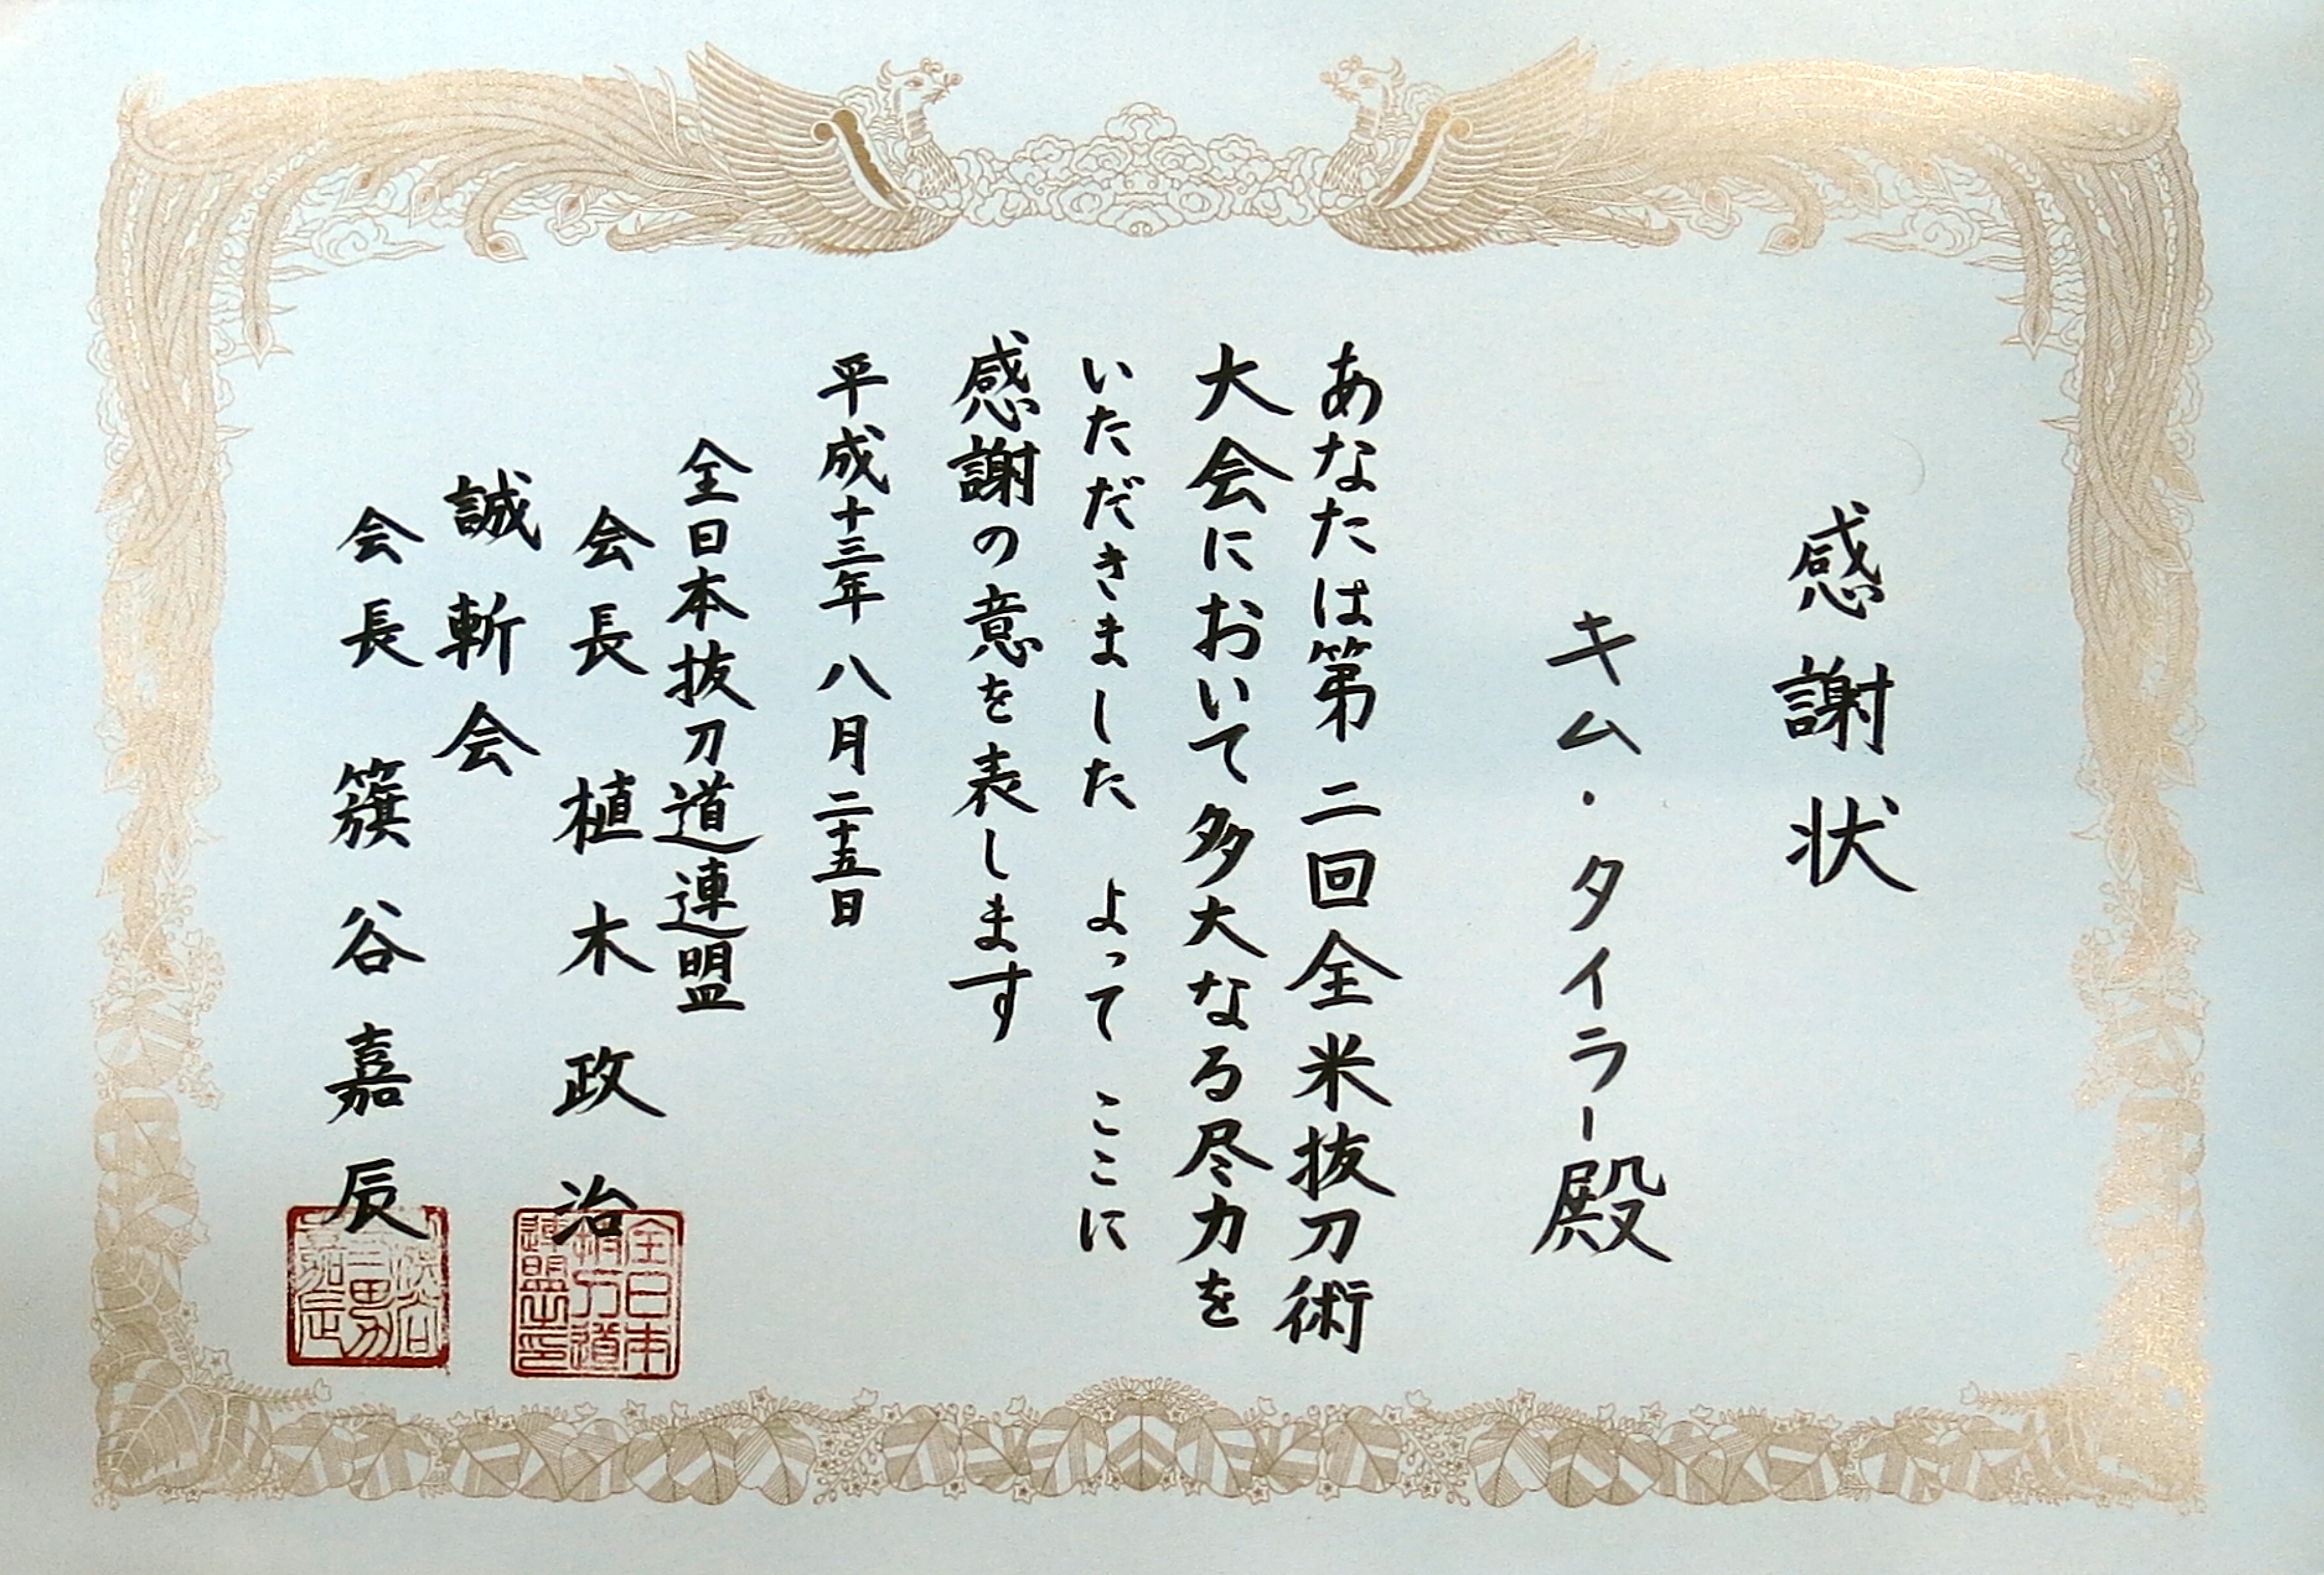 感謝状
キム・タイラー殿
あなたは第二回全米抜刀術
大会において多大なる尽力を
いただきました よって ここに
感謝の意を表します
平成十三年八月二十五日
全日本抜刀道連盟
会長 植木政治
誠斬会
会長 籏谷嘉辰
全日本
抜刀道
連盟印